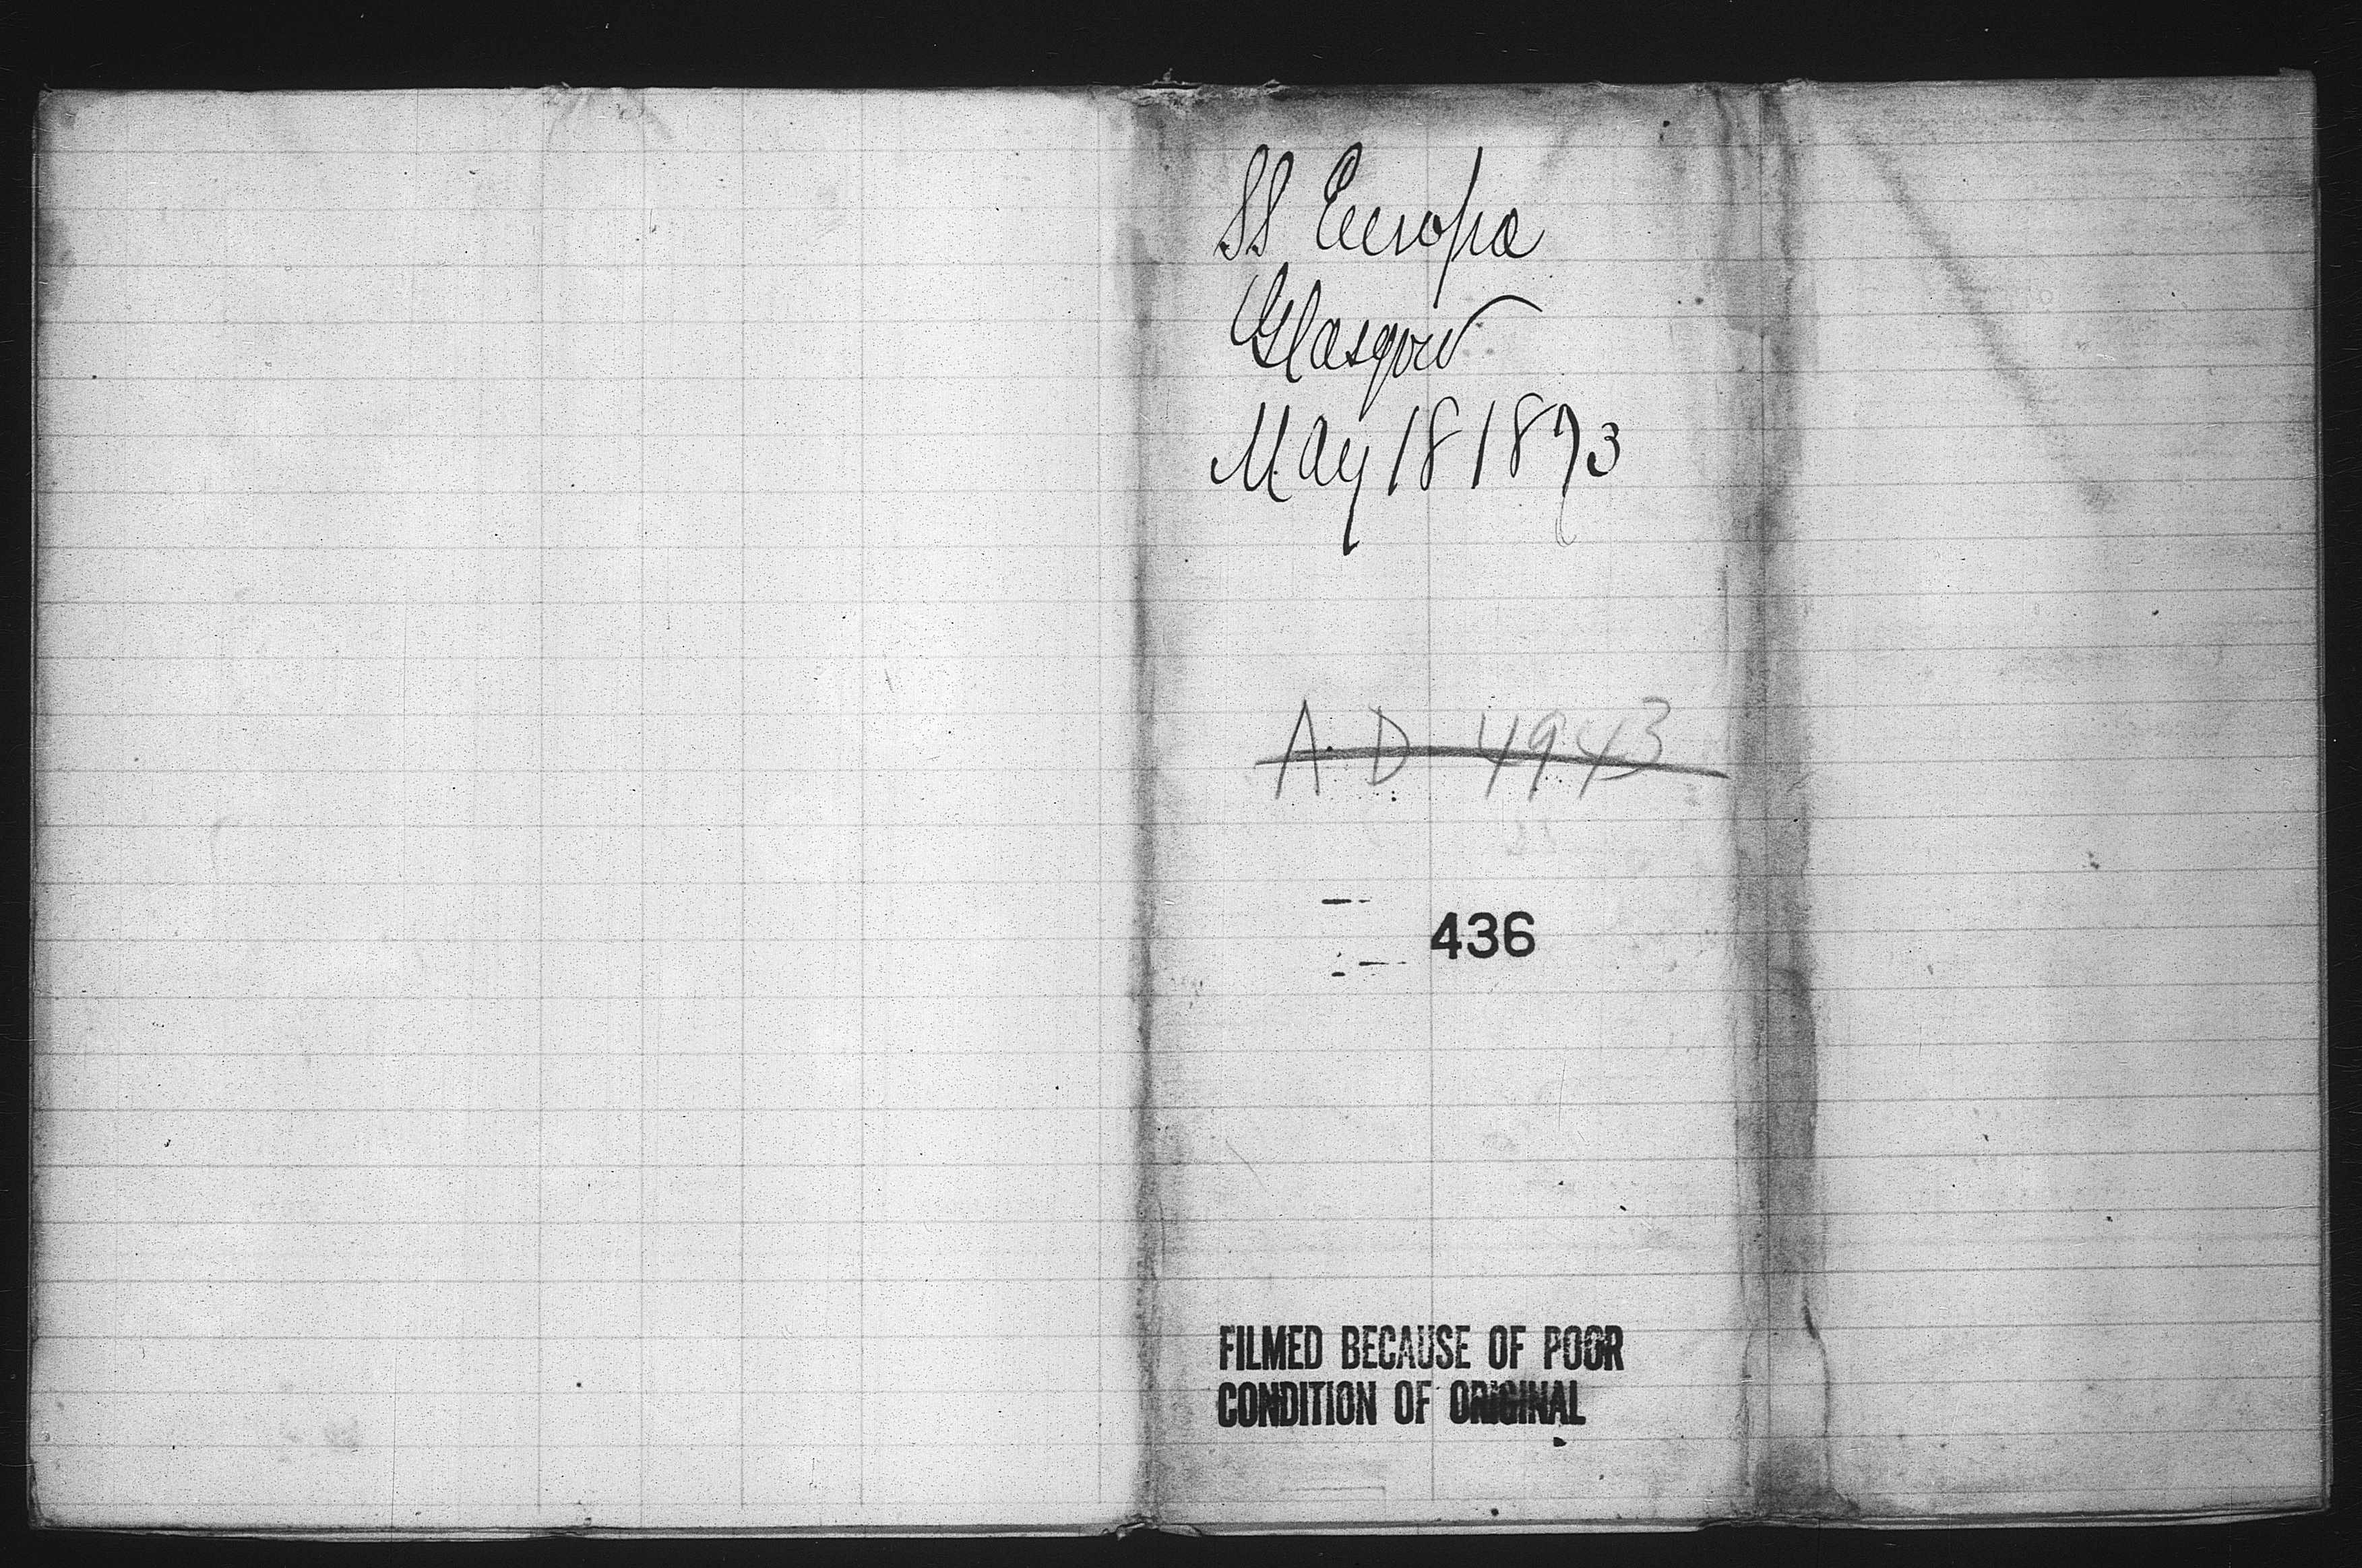 SS Europa
Glasgow
May 18 1873
A D 4943
436
FILMED BECAUSE OF POOR
CONDITION OF ORIGINAL